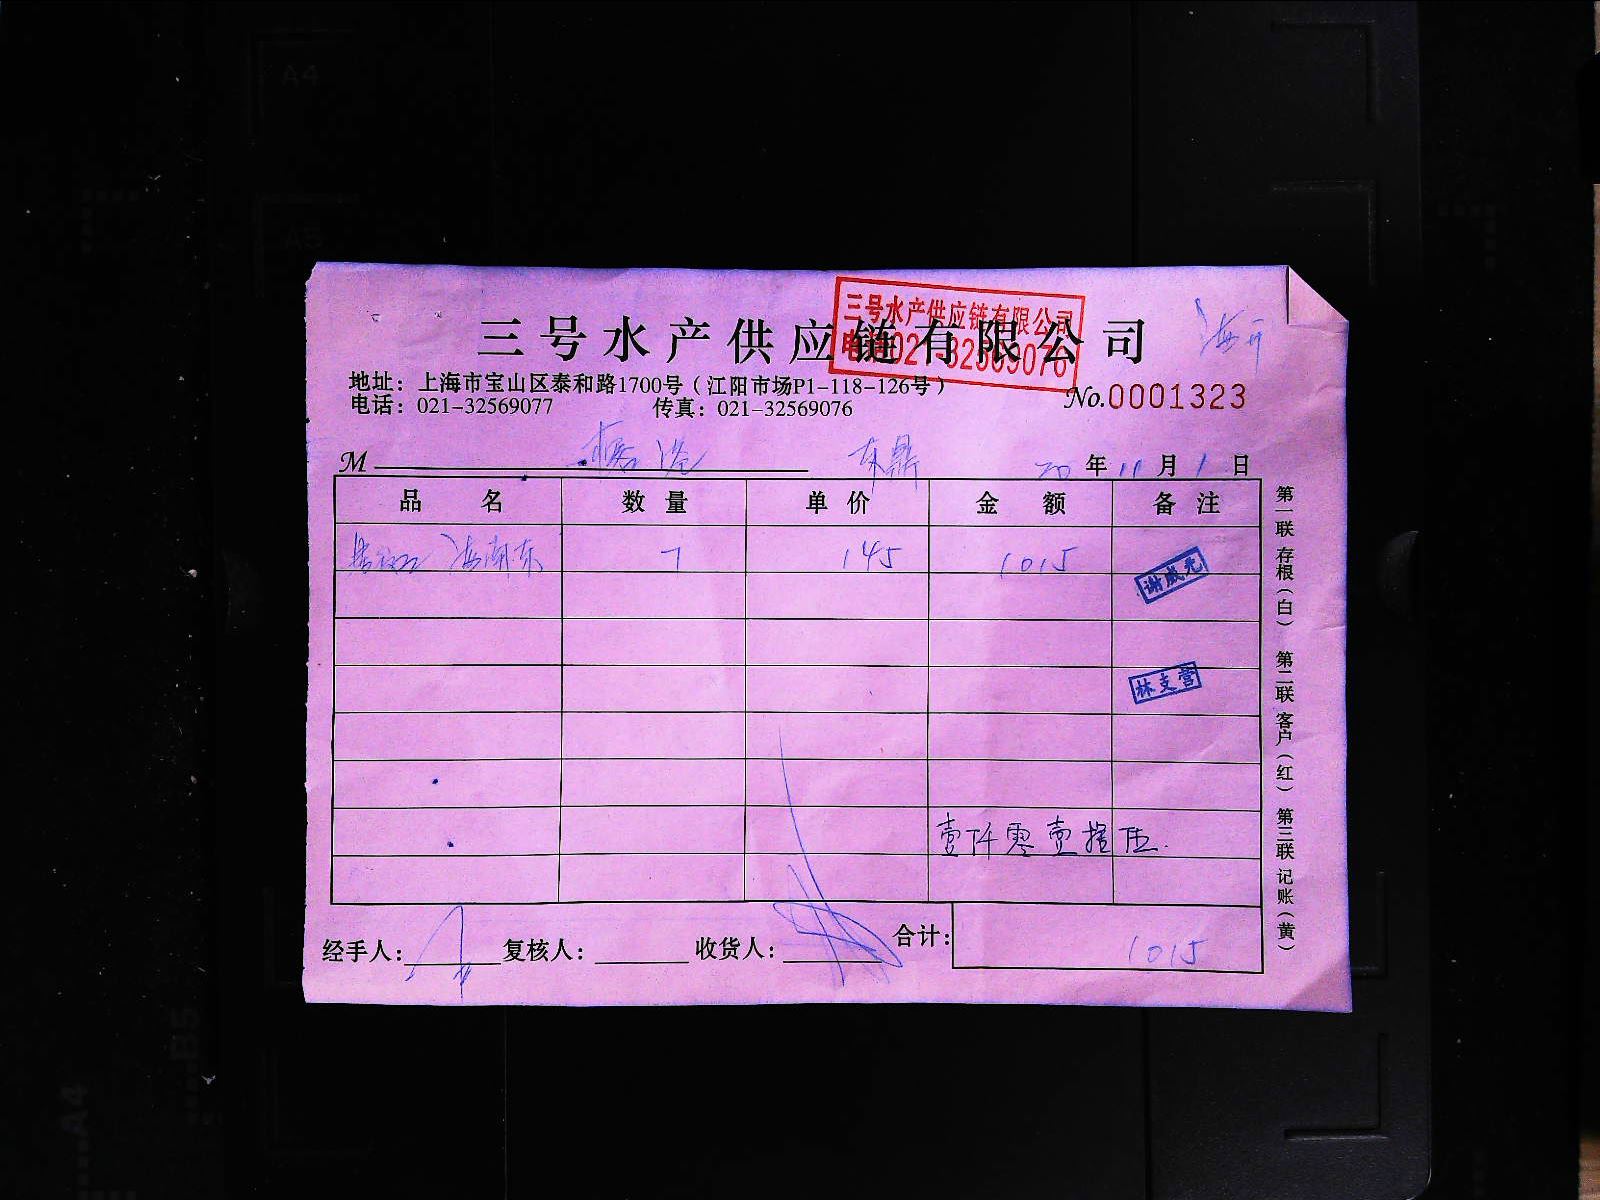 三号水产供应链有限公司
三号水产供应链有限公司
电话:021-32569076
地址：上海市宝山区泰和路1700号（江阳市场P1-118-126号）
电话：021-32569077 传真：021-32569076
No.0001323
M 东鼎 20年11月1日
品名 数量 单价 金额 备注
海南东 7 145 1015
谢成光
林支营
壹仟零壹拾伍
经手人: 复核人: 收货人: 合计: 1015
第一联 存根（白） 第二联 客户（红） 第三联 记账（黄）